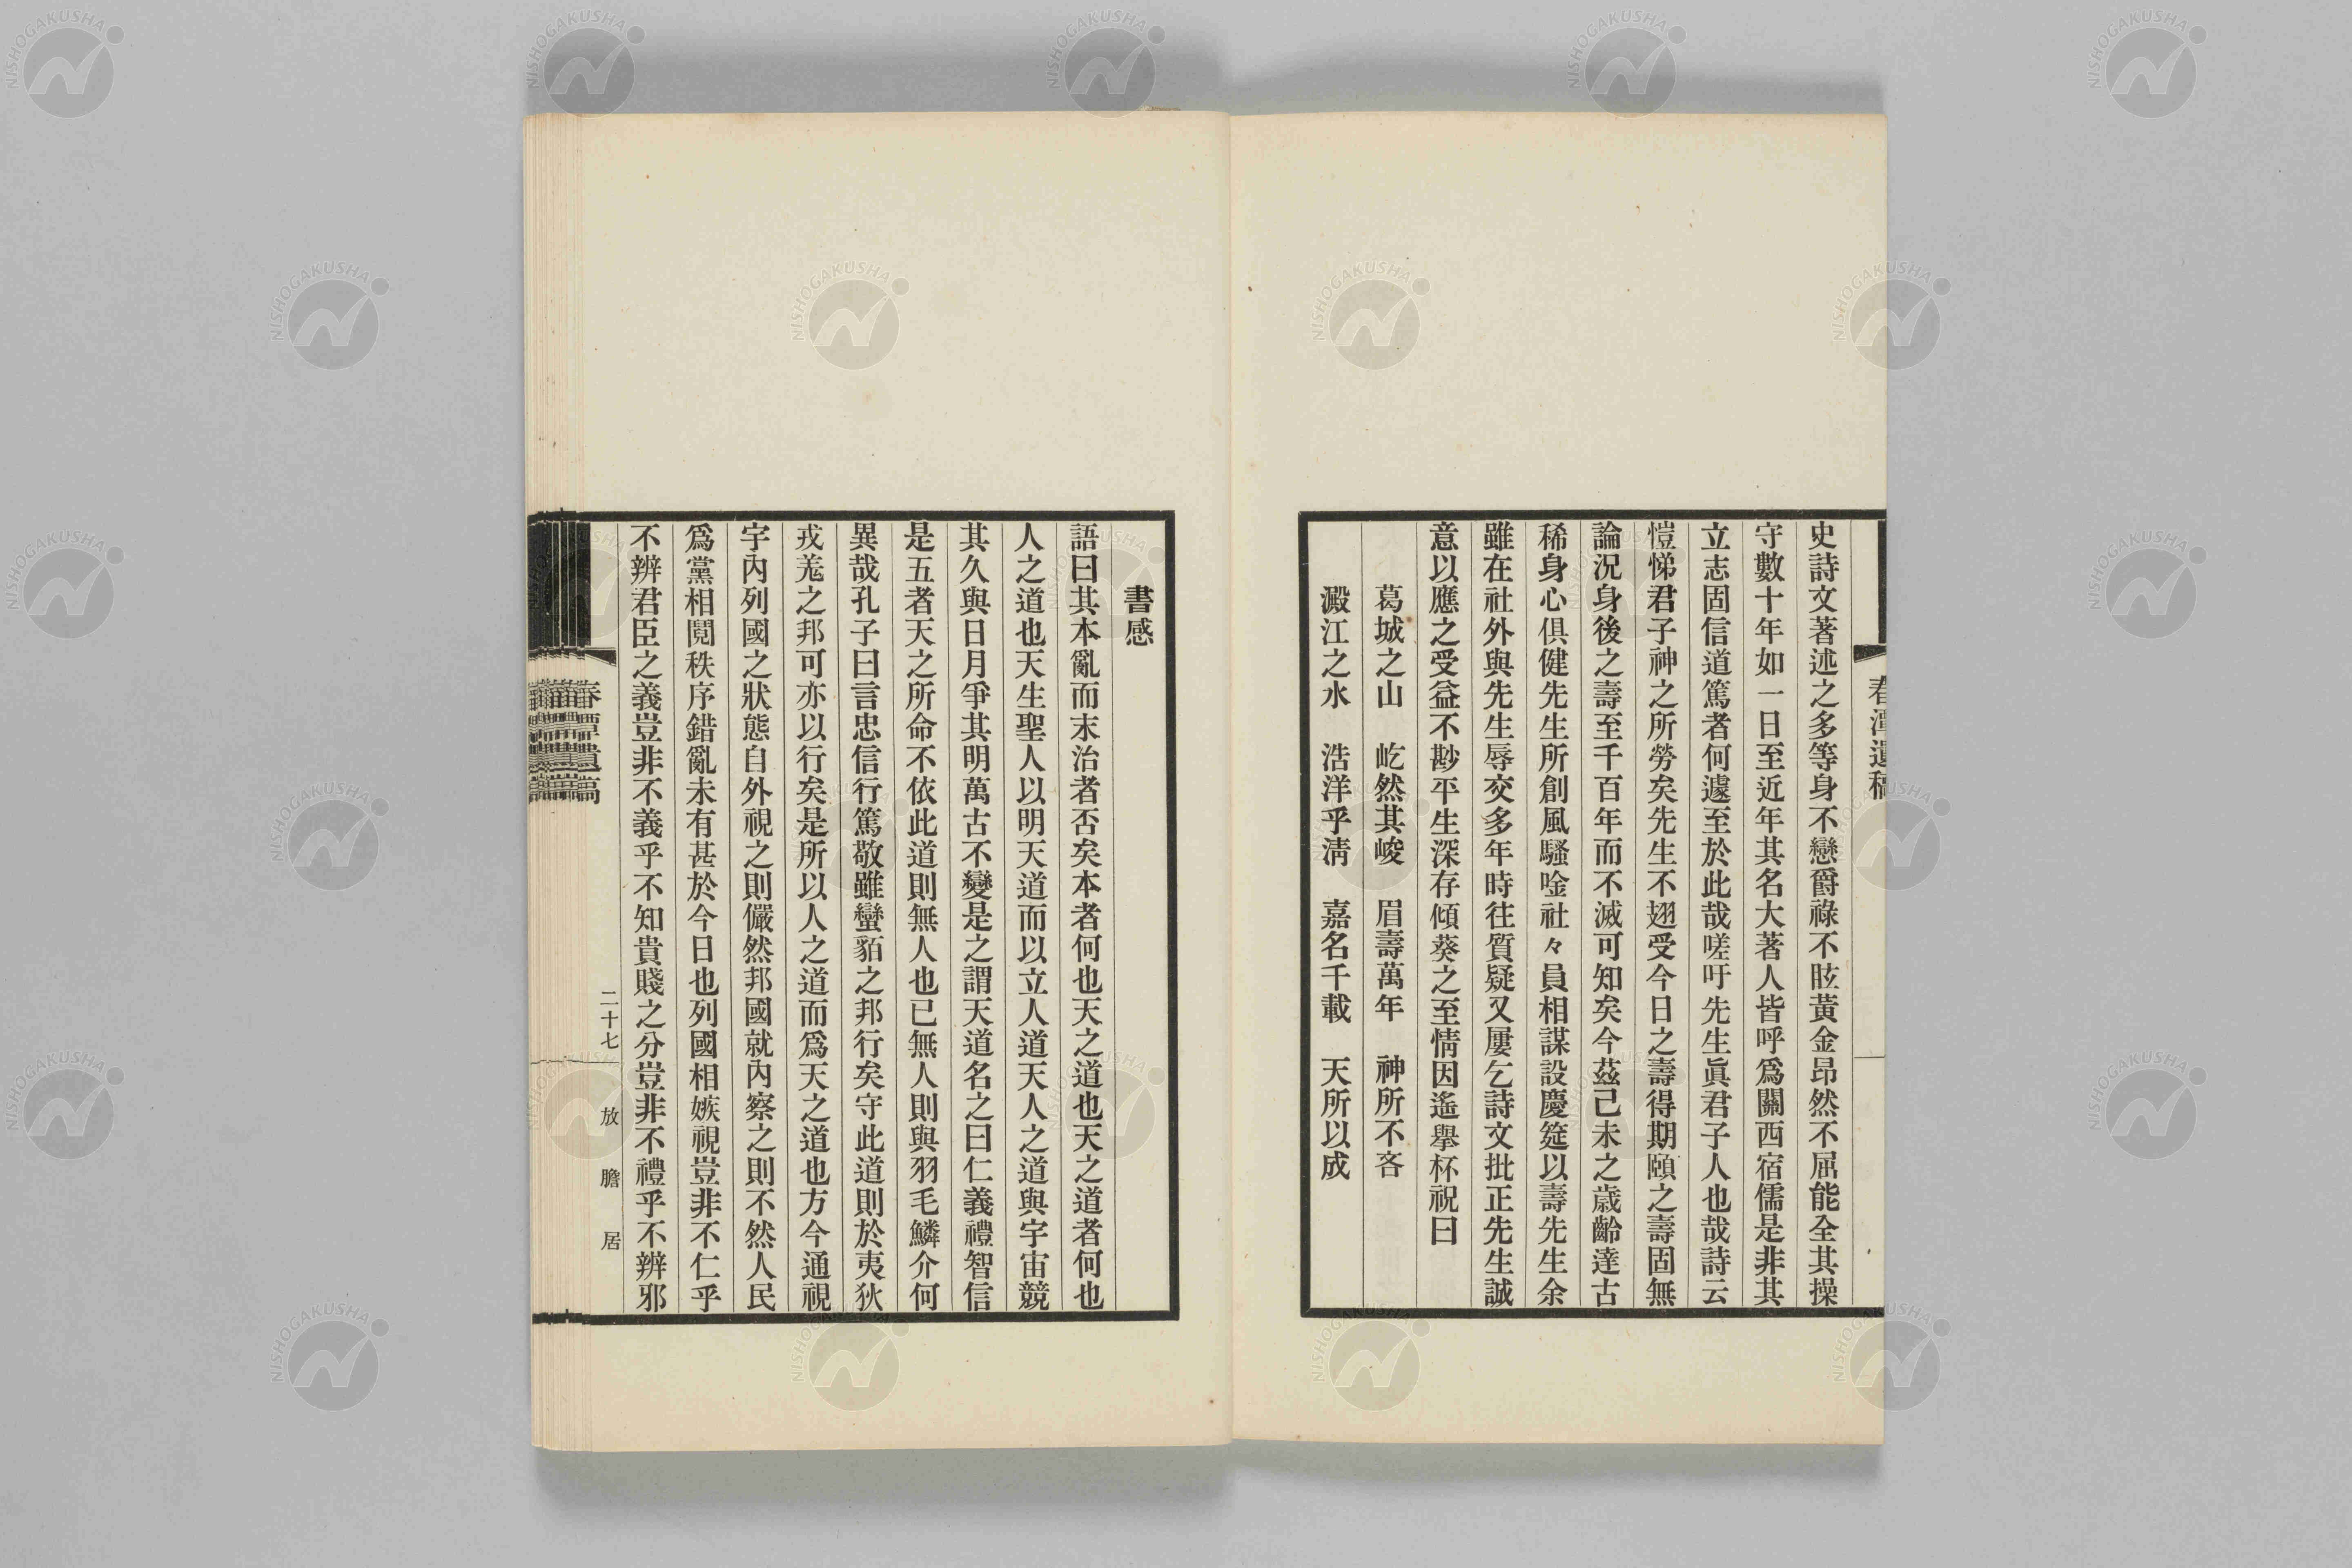 史詩文著述之多等身不戀爵祿不眩黃金昂然不屈能全其操
守數十年如一日至近年其名大著人皆呼爲關西宿儒是非其
立志固信道篤者何遽至於此哉嗟吁先生眞君子人也哉詩云
愷悌君子神之所勞矣先生不翅受今日之壽得期頤之壽固無
論況身後之壽至千百年而不滅可知矣今茲己未之歲齡達古
稀身心俱健先生所創風騷唫社々員相謀設慶筵以壽先生余
雖在社外與先生辱交多年時往質疑又屢乞詩文批正先生誠
意以應之受益不尠平生深存傾葵之至情因遙舉杯祝曰
葛城之山　屹然其峻　眉壽萬年　神所不吝
澱江之水　浩洋乎淸　嘉名千載　天所以成
春潭遺稿
書感
語曰其本亂而末治者否矣本者何也天之道也天之道者何也
人之道也天生聖人以明天道而以立人道天人之道與宇宙競
其久與日月爭其明萬古不變是之謂天道名之曰仁義禮智信
是五者天之所命不依此道則無人也已無人則與羽毛鱗介何
異哉孔子曰言忠信行篤敬雖蠻貊之邦行矣守此道則於夷狄
戎羌之邦可亦以行矣是所以人之道而爲天之道也方今通視
宇內列國之狀態自外視之則儼然邦國就內察之則不然人民
爲黨相鬩秩序錯亂未有甚於今日也列國相嫉視豈非不仁乎
不辨君臣之義豈非不義乎不知貴賤之分豈非不禮乎不辨邪
春潭遺稿
二十七
放膽居
NISHOGAKUSHA